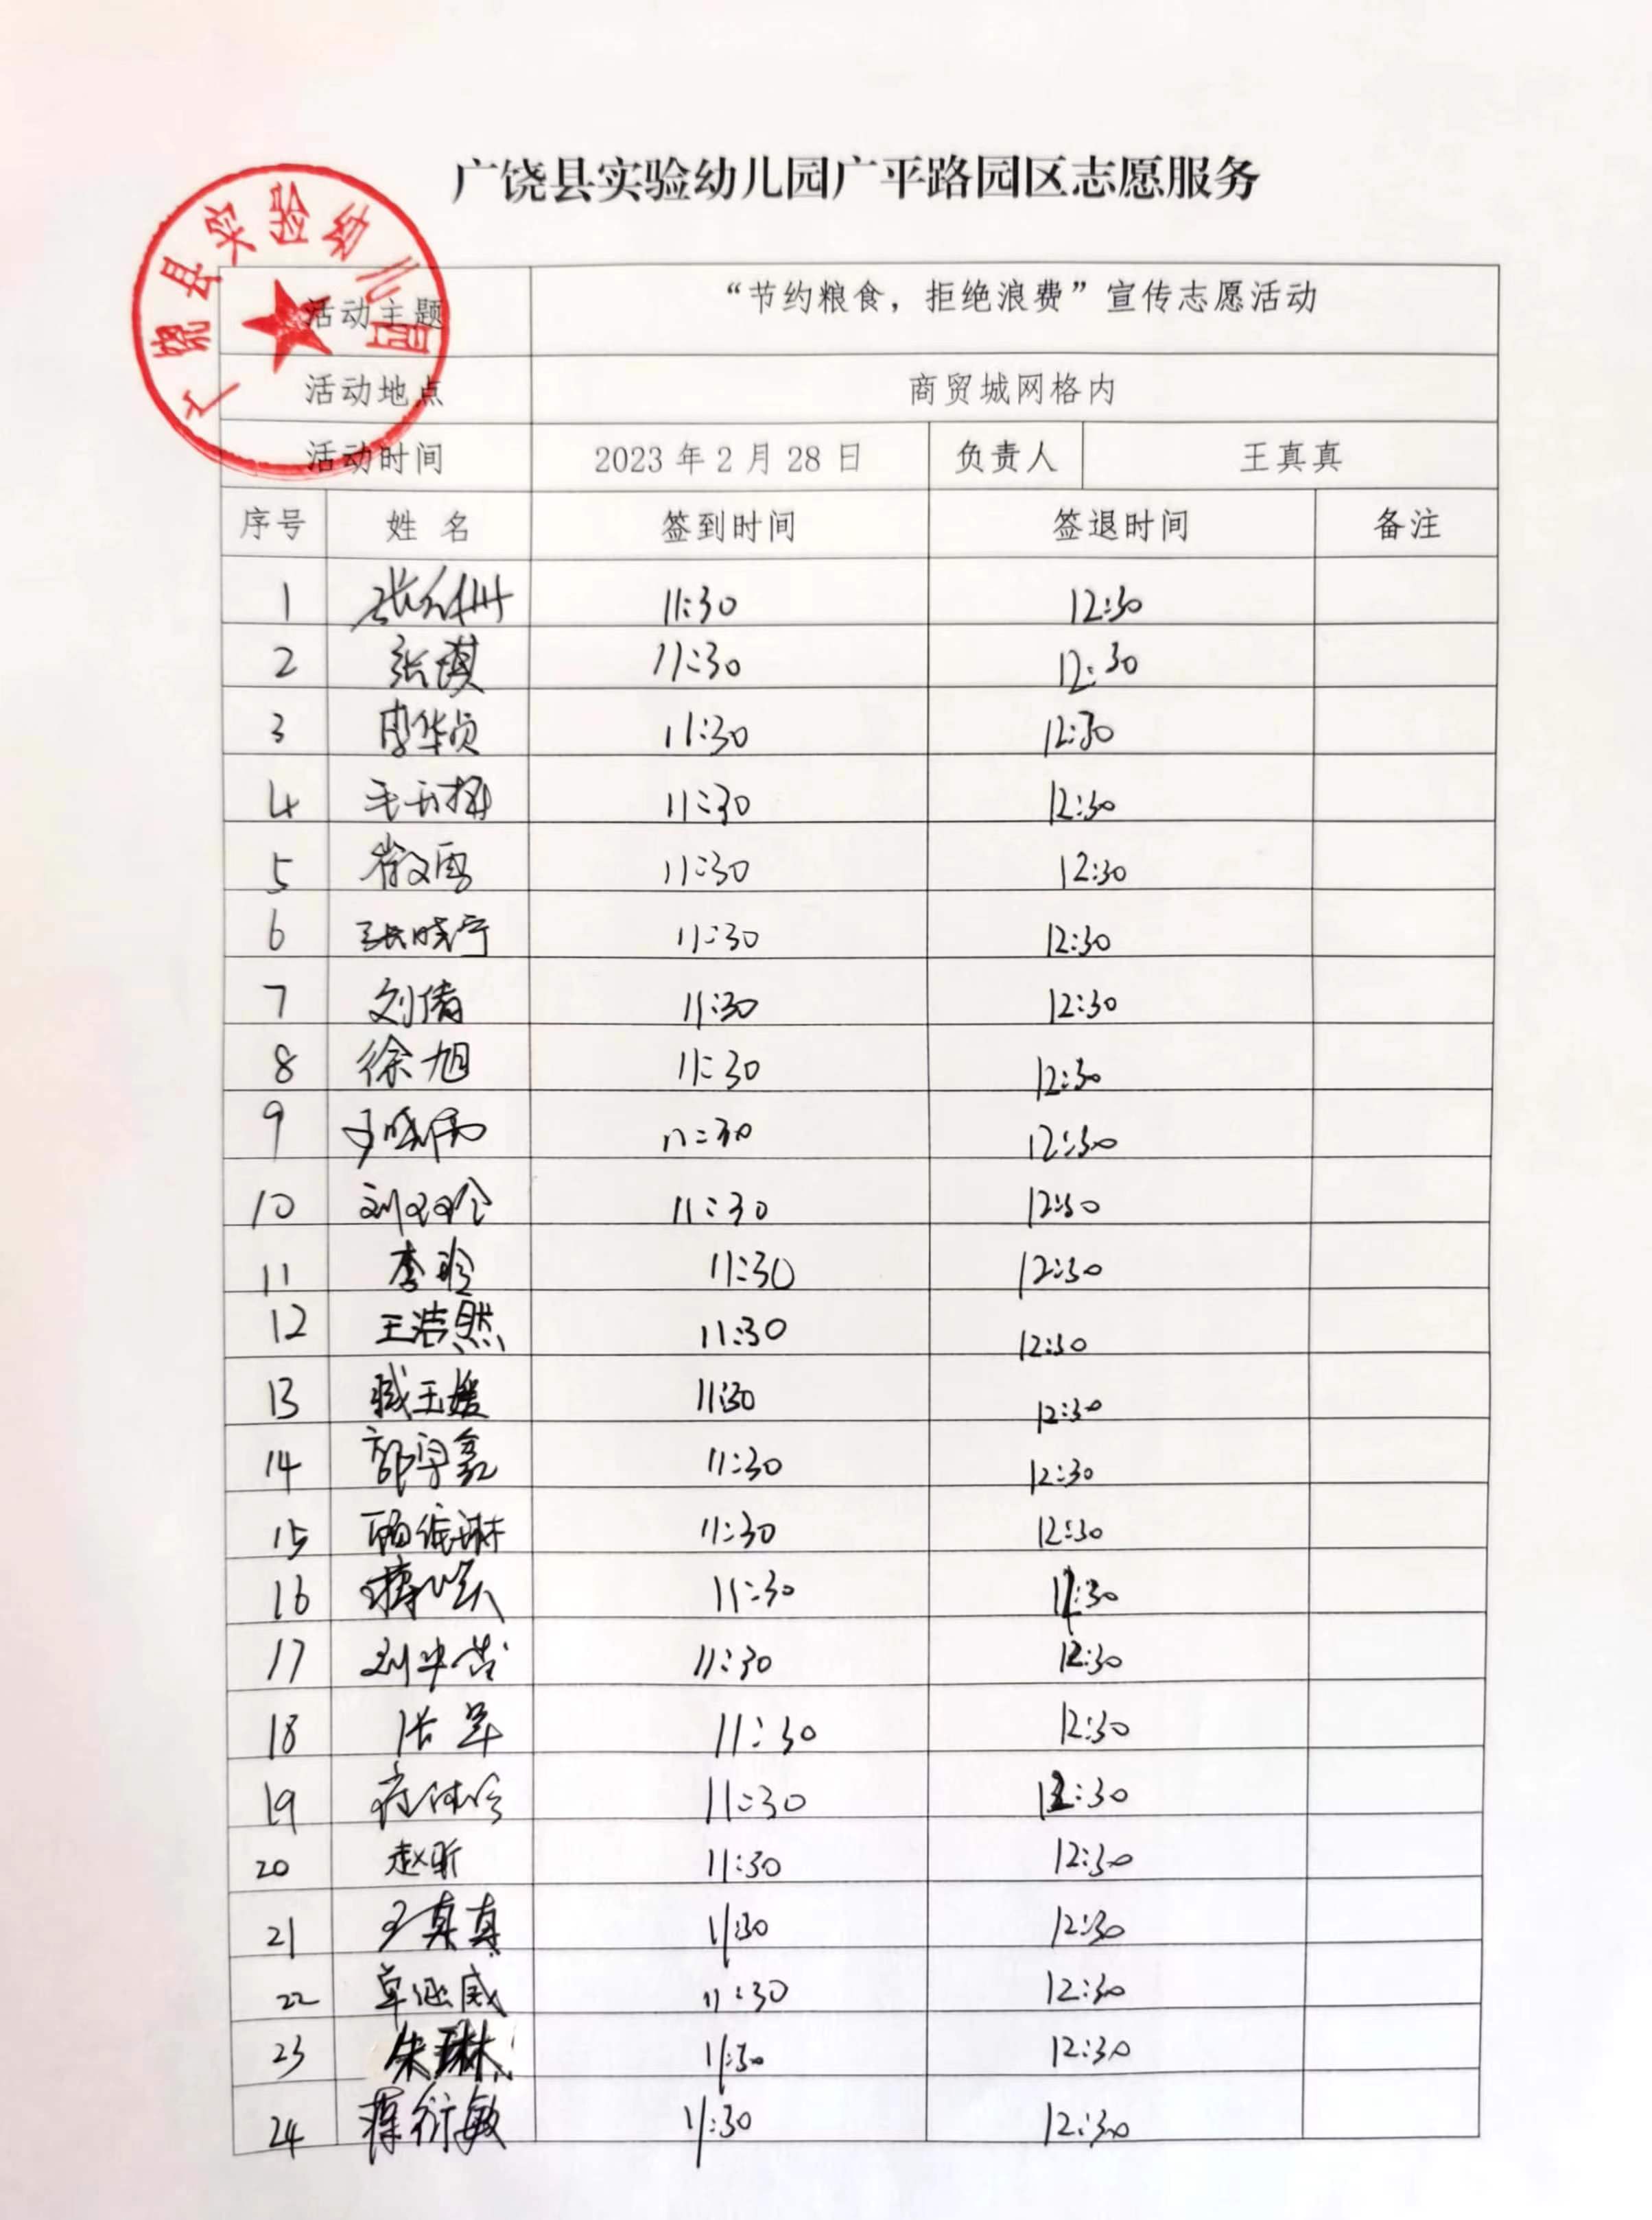 广饶县实验幼儿园广平路园区志愿服务
广饶县实验幼儿园
活动主题 “节约粮食，拒绝浪费”宣传志愿活动
活动地点 商贸城网格内
活动时间 2023年2月28日 负责人 王真真
序号 姓名 签到时间 签退时间 备注
1 11:30 12:30
2 张琪 11:30 12:30
3 李华贞 11:30 12:30
4 11:30 12:30
5 崔文雪 11:30 12:30
6 张晓宁 11:30 12:30
7 刘倩 11:30 12:30
8 徐旭 11:30 12:30
9 11:30 12:30
10 刘双伶 11:30 12:30
11 李玲 11:30 12:30
12 王浩然 11:30 12:30
13 臧玉媛 11:30 12:30
14 11:30 12:30
15 11:30 12:30
16 11:30 12:30
17 11:30 12:30
18 11:30 12:30
19 11:30 12:30
20 赵昕 11:30 12:30
21 王真真 11:30 12:30
22 11:30 12:30
23 朱琳 11:30 12:30
24 11:30 12:30